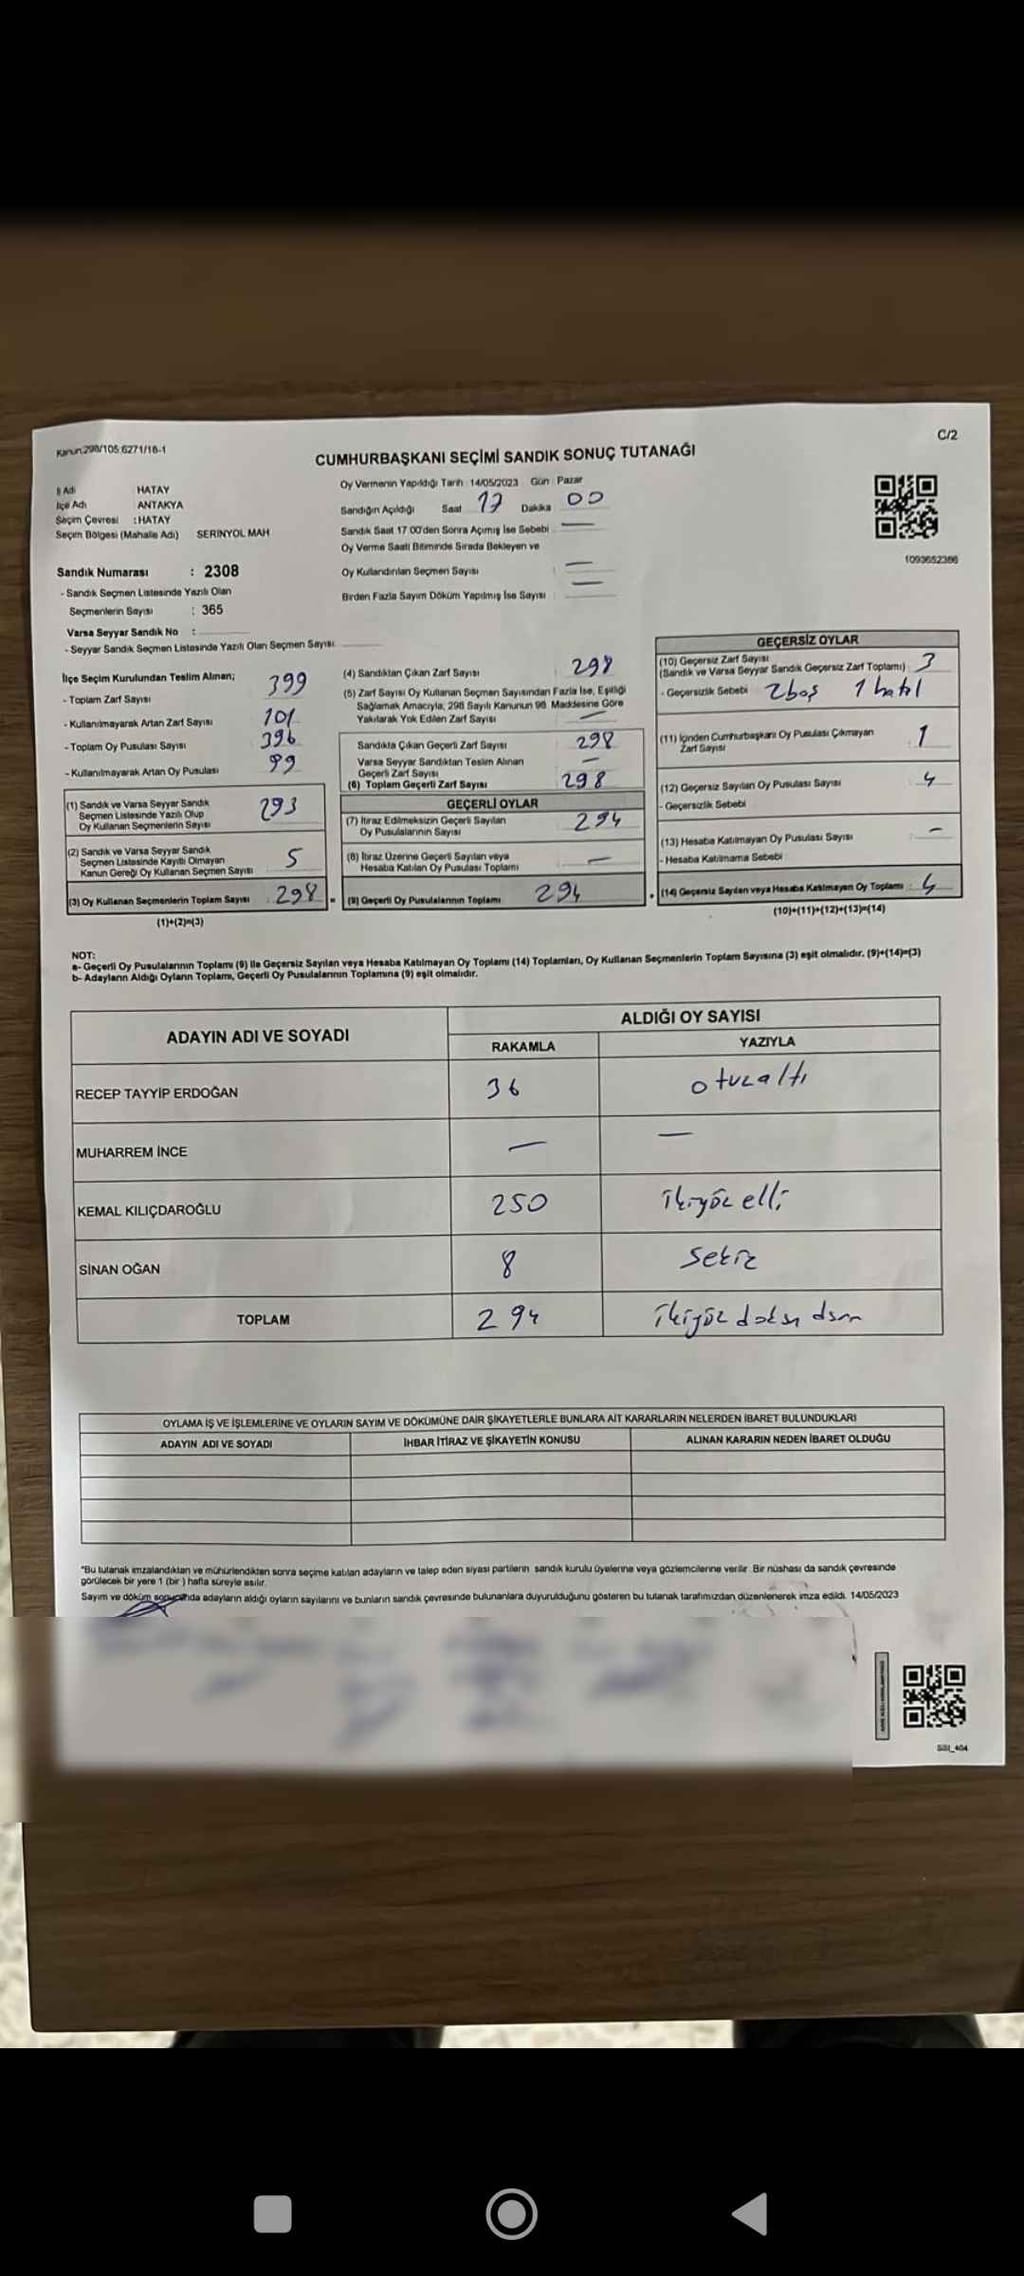 Kanun:298/105:6271/16-1
C/2
CUMHURBAŞKANI SEÇİMİ SANDIK SONUÇ TUTANAĞI
İl Adı HATAY
İlçe Adı ANTAKYA
Seçim Çevresi : HATAY
Seçim Bölgesi (Mahalle Adı) SERINYOL MAH
Sandık Numarası : 2308
- Sandık Seçmen Listesinde Yazılı Olan
Seçmenlerin Sayısı : 365
Varsa Seyyar Sandık No :
- Seyyar Sandık Seçmen Listesinde Yazılı Olan Seçmen Sayısı
Oy Vermenin Yapıldığı Tarih 14/05/2023 Gün Pazar
Sandığın Açıldığı Saat 17 Dakika 00
Sandık Saat 17.00'den Sonra Açımış İse Sebebi —
Oy Verme Saati Bitiminde Sırada Bekleyen ve
Oy Kullandırılan Seçmen Sayısı : —
Birden Fazla Sayım Döküm Yapılmış İse Sayısı : —
1093652386
İlçe Seçim Kurulundan Teslim Alınan;
- Toplam Zarf Sayısı 399
- Kullanılmayarak Artan Zarf Sayısı 101
- Toplam Oy Pusulası Sayısı 396
- Kullanılmayarak Artan Oy Pusulası 99
(1) Sandık ve Varsa Seyyar Sandık
Seçmen Listesinde Yazılı Olup
Oy Kullanan Seçmenlerin Sayısı 293
(2) Sandık ve Varsa Seyyar Sandık
Seçmen Listesinde Kayıtlı Olmayan
Kanun Gereği Oy Kullanan Seçmen Sayısı 5
(3) Oy Kullanan Seçmenlerin Toplam Sayısı : 298
(1)+(2)=(3)
(4) Sandıktan Çıkan Zarf Sayısı 298
(5) Zarf Sayısı Oy Kullanan Seçmen Sayısından Fazla İse, Eşitliği
Sağlamak Amacıyla, 298 Sayılı Kanunun 98. Maddesine Göre
Yakılarak Yok Edilen Zarf Sayısı —
Sandıkta Çıkan Geçerli Zarf Sayısı 298
Varsa Seyyar Sandıktan Teslim Alınan
Geçerli Zarf Sayısı —
(6) Toplam Geçerli Zarf Sayısı 298
GEÇERLİ OYLAR
(7) İtiraz Edilmeksizin Geçerli Sayılan
Oy Pusulalarının Sayısı 294
(8) İtiraz Üzerine Geçerli Sayılan veya
Hesaba Katılan Oy Pusulası Toplamı —
(9) Geçerli Oy Pusulalarının Toplamı 294
GEÇERSİZ OYLAR
(10) Geçersiz Zarf Sayısı
(Sandık ve Varsa Seyyar Sandık Geçersiz Zarf Toplamı) 3
- Geçersizlik Sebebi 2 boş 1 hatıl
(11) İçinden Cumhurbaşkanı Oy Pusulası Çıkmayan
Zarf Sayısı 1
(12) Geçersiz Sayılan Oy Pusulası Sayısı 4
- Geçersizlik Sebebi
(13) Hesaba Katılmayan Oy Pusulası Sayısı —
- Hesaba Katılmama Sebebi
(14) Geçersiz Sayılan veya Hesaba Katılmayan Oy Toplamı : 4
(10)+(11)+(12)+(13)=(14)
NOT:
a- Geçerli Oy Pusulalarının Toplamı (9) ile Geçersiz Sayılan veya Hesaba Katılmayan Oy Toplamı (14) Toplamları, Oy Kullanan Seçmenlerin Toplam Sayısına (3) eşit olmalıdır. (9)+(14)=(3)
b- Adayların Aldığı Oyların Toplamı, Geçerli Oy Pusulalarının Toplamına (9) eşit olmalıdır.
ADAYIN ADI VE SOYADI ALDIĞI OY SAYISI
RAKAMLA YAZIYLA
RECEP TAYYİP ERDOĞAN 36 otuzaltı
MUHARREM İNCE — —
KEMAL KILIÇDAROĞLU 250 ikiyüz elli
SİNAN OĞAN 8 Sekiz
TOPLAM 294 ikiyüz doksan
OYLAMA İŞ VE İŞLEMLERİNE VE OYLARIN SAYIM VE DÖKÜMÜNE DAİR ŞİKAYETLERLE BUNLARA AİT KARARLARIN NELERDEN İBARET BULUNDUKLARI
ADAYIN ADI VE SOYADI İHBAR İTİRAZ VE ŞİKAYETİN KONUSU ALINAN KARARIN NEDEN İBARET OLDUĞU
*Bu tutanak imzalandıktan ve mühürlendikten sonra seçime katılan adayların ve talep eden siyasi partilerin sandık kurulu üyelerine veya gözlemcilerine verilir. Bir nüshası da sandık çevresinde
görülecek bir yere 1 (bir) hafta süreyle asılır.
Sayım ve döküm sonucunda adayların aldığı oyların sayılarını ve bunların sandık çevresinde bulunanlara duyurulduğunu gösteren bu tutanak tarafımızdan düzenlenerek imza edildi. 14/05/2023